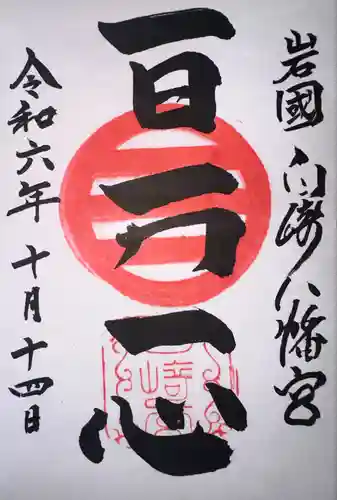 岩國白崎八幡宮
百万一心
令和六年十月十四日